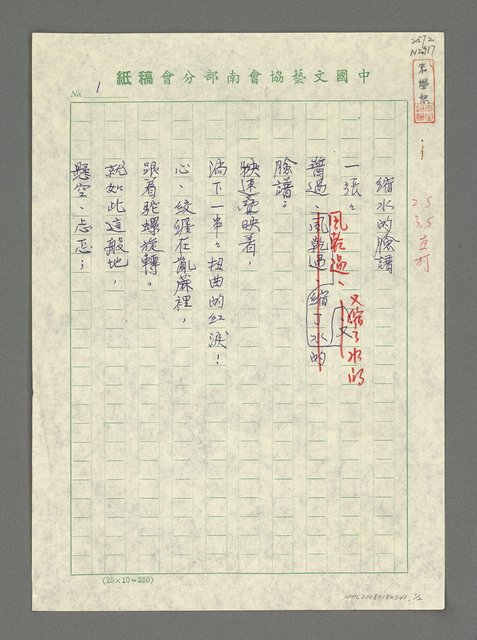 中國文藝協會南部分會稿紙
No. 1
縮水的臉譜
一張々
醬過、風乾過、縮了水的
風乾過、
又縮了水的
又
臉譜：
快速疊映着，
淌下一串々扭曲的紅淚！
心、絞纏在亂蔴裡，
跟着陀螺旋轉。
就如此這般地，
懸空、忐忑；
(25×10=250)